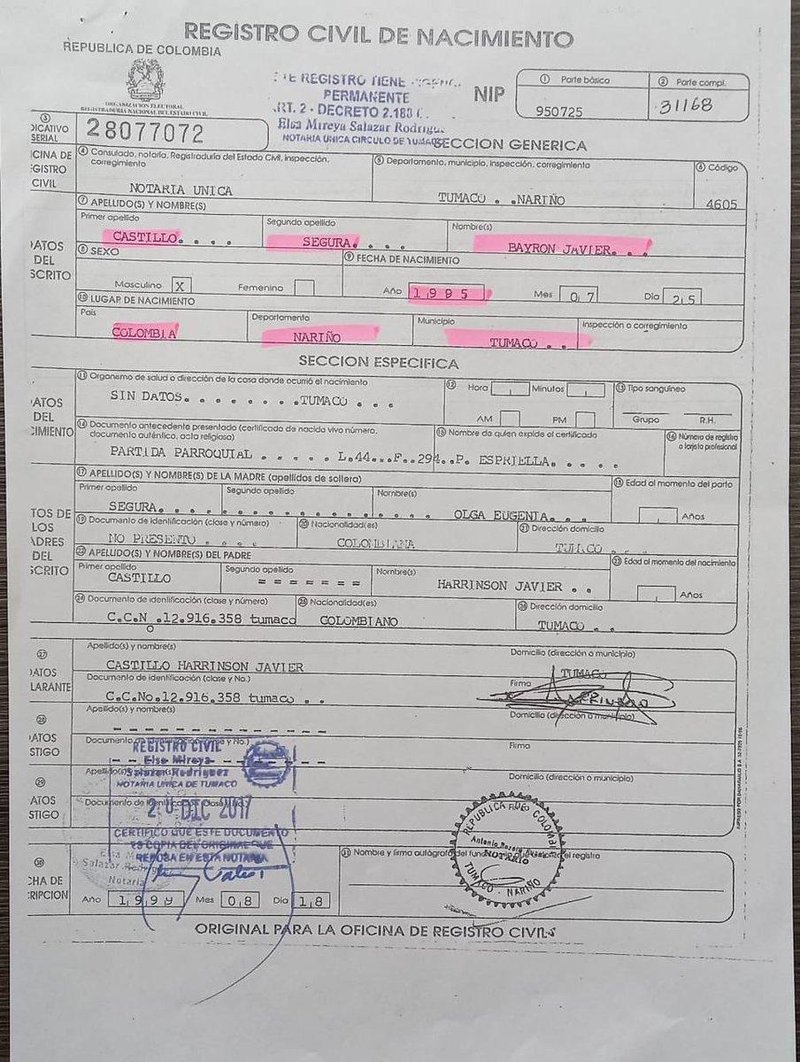 REGISTRO CIVIL DE NACIMIENTO
REPUBLICA DE COLOMBIA
ORGANIZACION ELECTORAL
REGISTRADURIA NACIONAL DEL ESTADO CIVIL
REGISTRO TIENE
PERMANENTE
RT. 2 - DECRETO 2.188
Elsa Mireya Salazar Rodrigu
NOTARIA UNICA CIRCULO DE TUMA
NIP
① Parte básica
950725
② Parte compl.
31168
③
DICATIVO
SERIAL
28077072
SECCION GENERICA
CINA DE
GISTRO
CIVIL
④ Consulado, notaría, Registraduría del Estado Civil, inspección, corregimiento
NOTARIA UNICA
⑤ Departamento, municipio, inspección, corregimiento
TUMACO . .NARIÑO
⑥ Código
4605
ATOS
DEL
SCRITO
⑦ APELLIDO(S) Y NOMBRE(S)
Primer apellido
CASTILLO. . . .
Segundo apellido
SEGURA. . . .
Nombre(s)
BAYRON JAVIER. . .
⑧ SEXO
Masculino X
Femenino
⑨ FECHA DE NACIMIENTO
Año 1995
Mes 07
Día 25
⑩ LUGAR DE NACIMIENTO
País
COLOMBIA
Departamento
NARIÑO
Municipio
TUMACO . .
Inspección o corregimiento
SECCION ESPECIFICA
ATOS
DEL
CIMIENTO
⑪ Organismo de salud o dirección de la casa donde ocurrió el nacimiento
SIN DATOS. . . . . . . .TUMACO . . .
⑫ Hora
Minutos
AM
PM
⑬ Tipo sanguíneo
Grupo
R.H.
⑭ Documento antecedente presentado (certificado de nacido vivo número, documento auténtico, acta religiosa)
PARTIDA PARROQUIAL . . . . . L.44...F..294..P. ESPRIELLA. . . . .
⑮ Nombre de quien expide el certificado
⑯ Número de registro o tarjeta profesional
TOS DE
LOS
ADRES
DEL
SCRITO
⑰ APELLIDO(S) Y NOMBRE(S) DE LA MADRE (apellidos de soltera)
Primer apellido
SEGURA. . . .
Segundo apellido
Nombre(s)
OLGA EUGENIA. . .
⑱ Edad al momento del parto
Años
⑲ Documento de identificación (clase y número)
NO PRESENTO . . . .
⑳ Nacionalidad(es)
COLOMBIANA
㉑ Dirección domicilio
TUMACO . . .
㉒ APELLIDO(S) Y NOMBRE(S) DEL PADRE
Primer apellido
CASTILLO
Segundo apellido
= = = = = = =
Nombre(s)
HARRINSON JAVIER . .
㉓ Edad al momento del nacimiento
Años
㉔ Documento de identificación (clase y número)
C.C.N .12.916.358 tumaco
㉕ Nacionalidad(es)
COLOMBIANO
㉖ Dirección domicilio
TUMACO . . .
㉗
DATOS
LARANTE
Apellido(s) y nombre(s)
CASTILLO HARRINSON JAVIER
Domicilio (dirección o municipio)
TUMACO
Documento de identificación (clase y No.)
C.C.No.12.916.358 tumaco . .
Firma
㉘
ATOS
STIGO
Apellido(s) y nombre(s)
Domicilio (dirección o municipio)
Documento
y No.)
Firma
REGISTRO CIVIL
Elsa Mireya
Salazar Rodriguez
NOTARIA UNICA DE TUMACO
㉙
ATOS
STIGO
Domicilio (dirección o municipio)
20 DIC 2017
CERTIFICO QUE ESTE DOCUMENTO
ES COPIA DEL ORIGINAL QUE
REPOSA EN ESTA NOTARIA
REPUBLICA DE COLOMBIA
NOTARIO
TUMACO - NARIÑO
㉚
CHA DE
RIPCION
Año 1999
Mes 08
Día 18
㉛ Nombre y firma autógrafa del funcionario el registro
ORIGINAL PARA LA OFICINA DE REGISTRO CIVIL